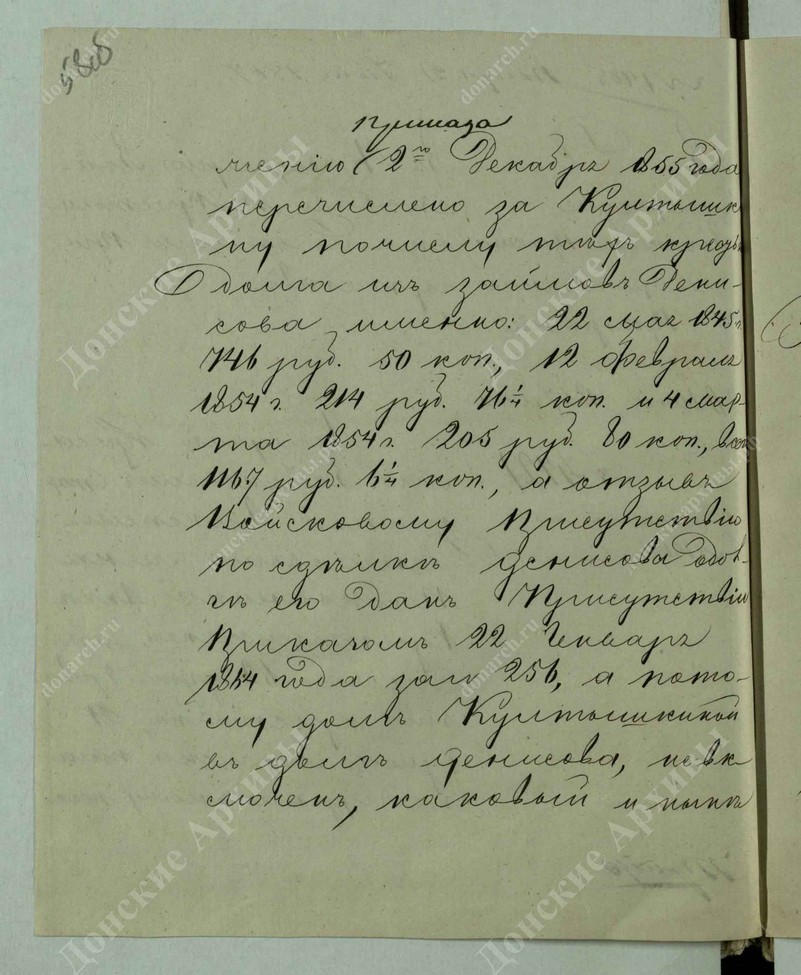 58об
Приказа
чению 2го Декабря 1855 года
перечислено за Култышки
ну почему
долга изъ займовъ Дени-
сова, именно: 22 Мая 1845 г.
746 руб. 50 коп., 12 Февраля
1854 г. 214 руб. 76¼ коп. и 4 Мар-
та 1854 г. 205 руб. 80 коп.,
1167 руб. 6¼ коп., а отзывъ
Войсковому Присутствію
по Денисова
его данъ Присутствію
Приказомъ 22 Генваря
года за № 256, а пото-
му долгъ Култышкиной
въ долгъ Денисова, не вк
люченъ, каковый и нынѣ
Донские Архивы
donarch.ru